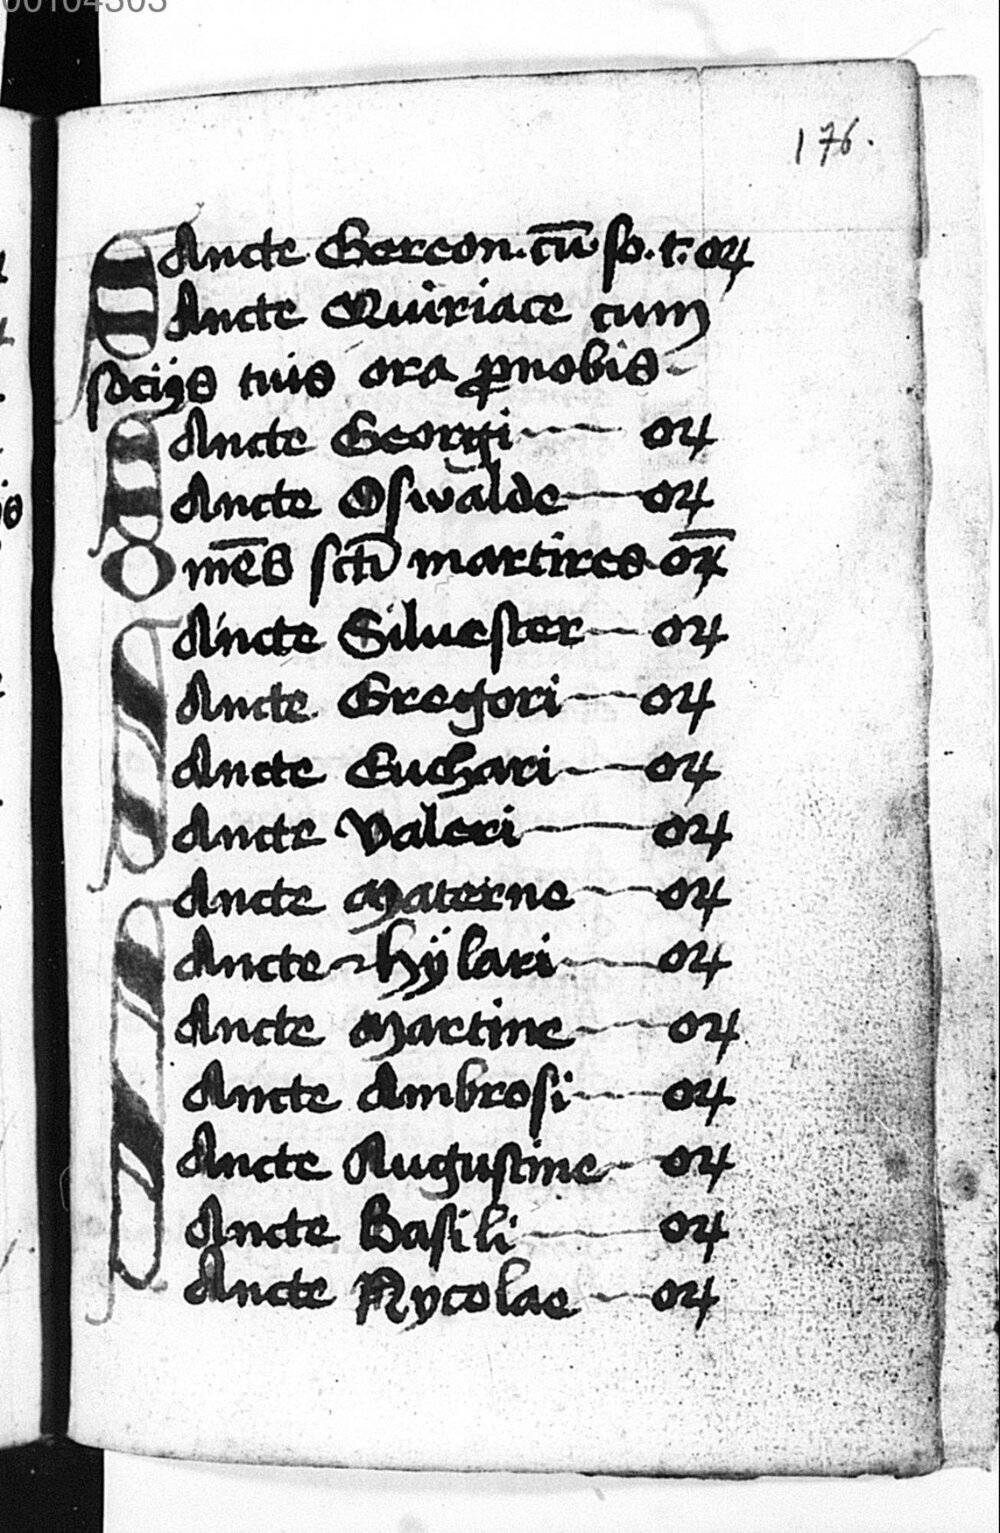 00104303
176.
SAncte Gereon. cū so. t. oꝝ
Ancte Quiriace cum
socijs tuis ora ꝓnobis
SAncte Georgi oꝝ
Ancte Oswalde oꝝ
Omēs sctī martires oꝝ̄
SAncte Siluester oꝝ
Ancte Gregori oꝝ
Ancte Euchari oꝝ
Ancte Valeri oꝝ
SAncte Materne oꝝ
Ancte hÿlari oꝝ
Ancte Martine oꝝ
Ancte Ambrosi oꝝ
Ancte Augustine oꝝ
Ancte Basili oꝝ
Ancte Nycolae oꝝ